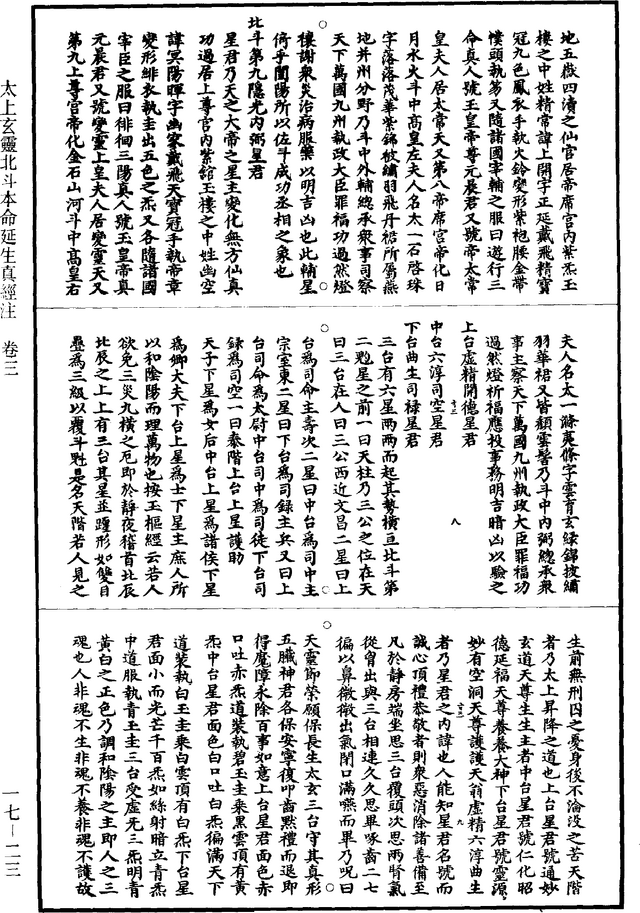 地五嶽四瀆之仙官居帝席宮內紫炁玉
樓之中姓精常諱上開字正延戴飛精寶
冠九色鳳衣手執火鈴變形紫袍腰金帶
幞頭執笏又隨諸國宰輔之服曰遊行三
命真人號玉皇帝尊元晨君又號帝太常
皇夫人居太常天又第八帝席宮帝化日
月水火斗中高皇左夫人名太一石啓珠
字落落茂華紫錦帔繡羽飛丹裙所屬燕
地并州分野乃斗中外輔總承衆事司察
天下萬國九州執政大臣罪福功過然燈
禳謝衆災治病服藥以明吉凶也此輔星
倚乎闓陽所以佐斗成功丞相之象也
北斗第九隱光內弼星君
星君乃天之大帝之星主變化無方仙真
功過居上尊宮內紫舘玉樓之中姓幽空
諱冥陽暉字幽寥戴飛天寶冠手執帝章
變形緋衣執圭出五色之炁又各隨諸國
宰臣之服曰徘徊三陽真人號玉皇帝真
元晨君又號變靈上皇夫人居變靈天又
第九上尊宮帝化金石山河斗中高皇右
夫人名太一滌夷條字雲育玄綠錦帔繡
羽華裙又皆頵雲髻乃斗中內弼總承衆
事主察天下萬國九州執政大臣罪福功
過然燈祈福應投事務明吉暗凶以驗之
上台虛精開德星君
中台六淳司空星君
下台曲生司祿星君
三台有六星兩兩而起其勢橫亘北斗第
二魁星之前一曰天柱乃三公之位在天
曰三台在人曰三公西近文昌二星曰上
台爲司命主壽次二星曰中台爲司中主
宗室東二星曰下台爲司錄主兵又曰上
台司命爲太尉中台司中爲司徒下台司
錄爲司空一曰泰階上台上星護助
天子下星爲女后中台上星爲諸侯下星
爲卿大夫下台上星爲士下星主庶人所
以和陰陽而理萬物也按玉樞經云若人
欲免三災九橫之厄即於靜夜稽首北辰
北辰之上上有三台其星並躔形如雙目
疊爲三級以覆斗魁是名天階若人見之
生前無刑囚之憂身後不淪沒之苦天階
者乃太上昇降之道也上台星君號通妙
玄道天尊生生主者中台星君號仁化昭
德延福天尊養養大神下台星君號靈源
妙有空洞天尊護護天翁虛精六淳曲生
者乃星君之內諱也人能知星君名號而
誠心頂禮恭敬者則衆惡消除諸善備至
凡於靜房端坐思三台覆頭次思兩腎氣
從臍出與三台相連久久思畢啄齒二七
徧以鼻微微出氣閉口滿嚥而畢乃呪曰
天靈節榮願保長生太玄三台守其真形
五臟神君各保安寧復叩齒黙禮而退即
得魔障永除百事如意上台星君面色赤
口吐赤炁道裝執碧玉圭乘黑雲頂有黄
炁中台星君面色白口吐白炁徧滿天下
道裝執白玉圭乘白雲頂有白炁下台星
君面小而光芒千百炁如絲射暗立青炁
中道服執青玉圭三台受虛无三炁明青
黄白之正色乃調和陰陽之主即人之三
魂也人非魂不生非魂不養非魂不護故
太上玄靈北斗本命延生真經注　卷三
一七－二三